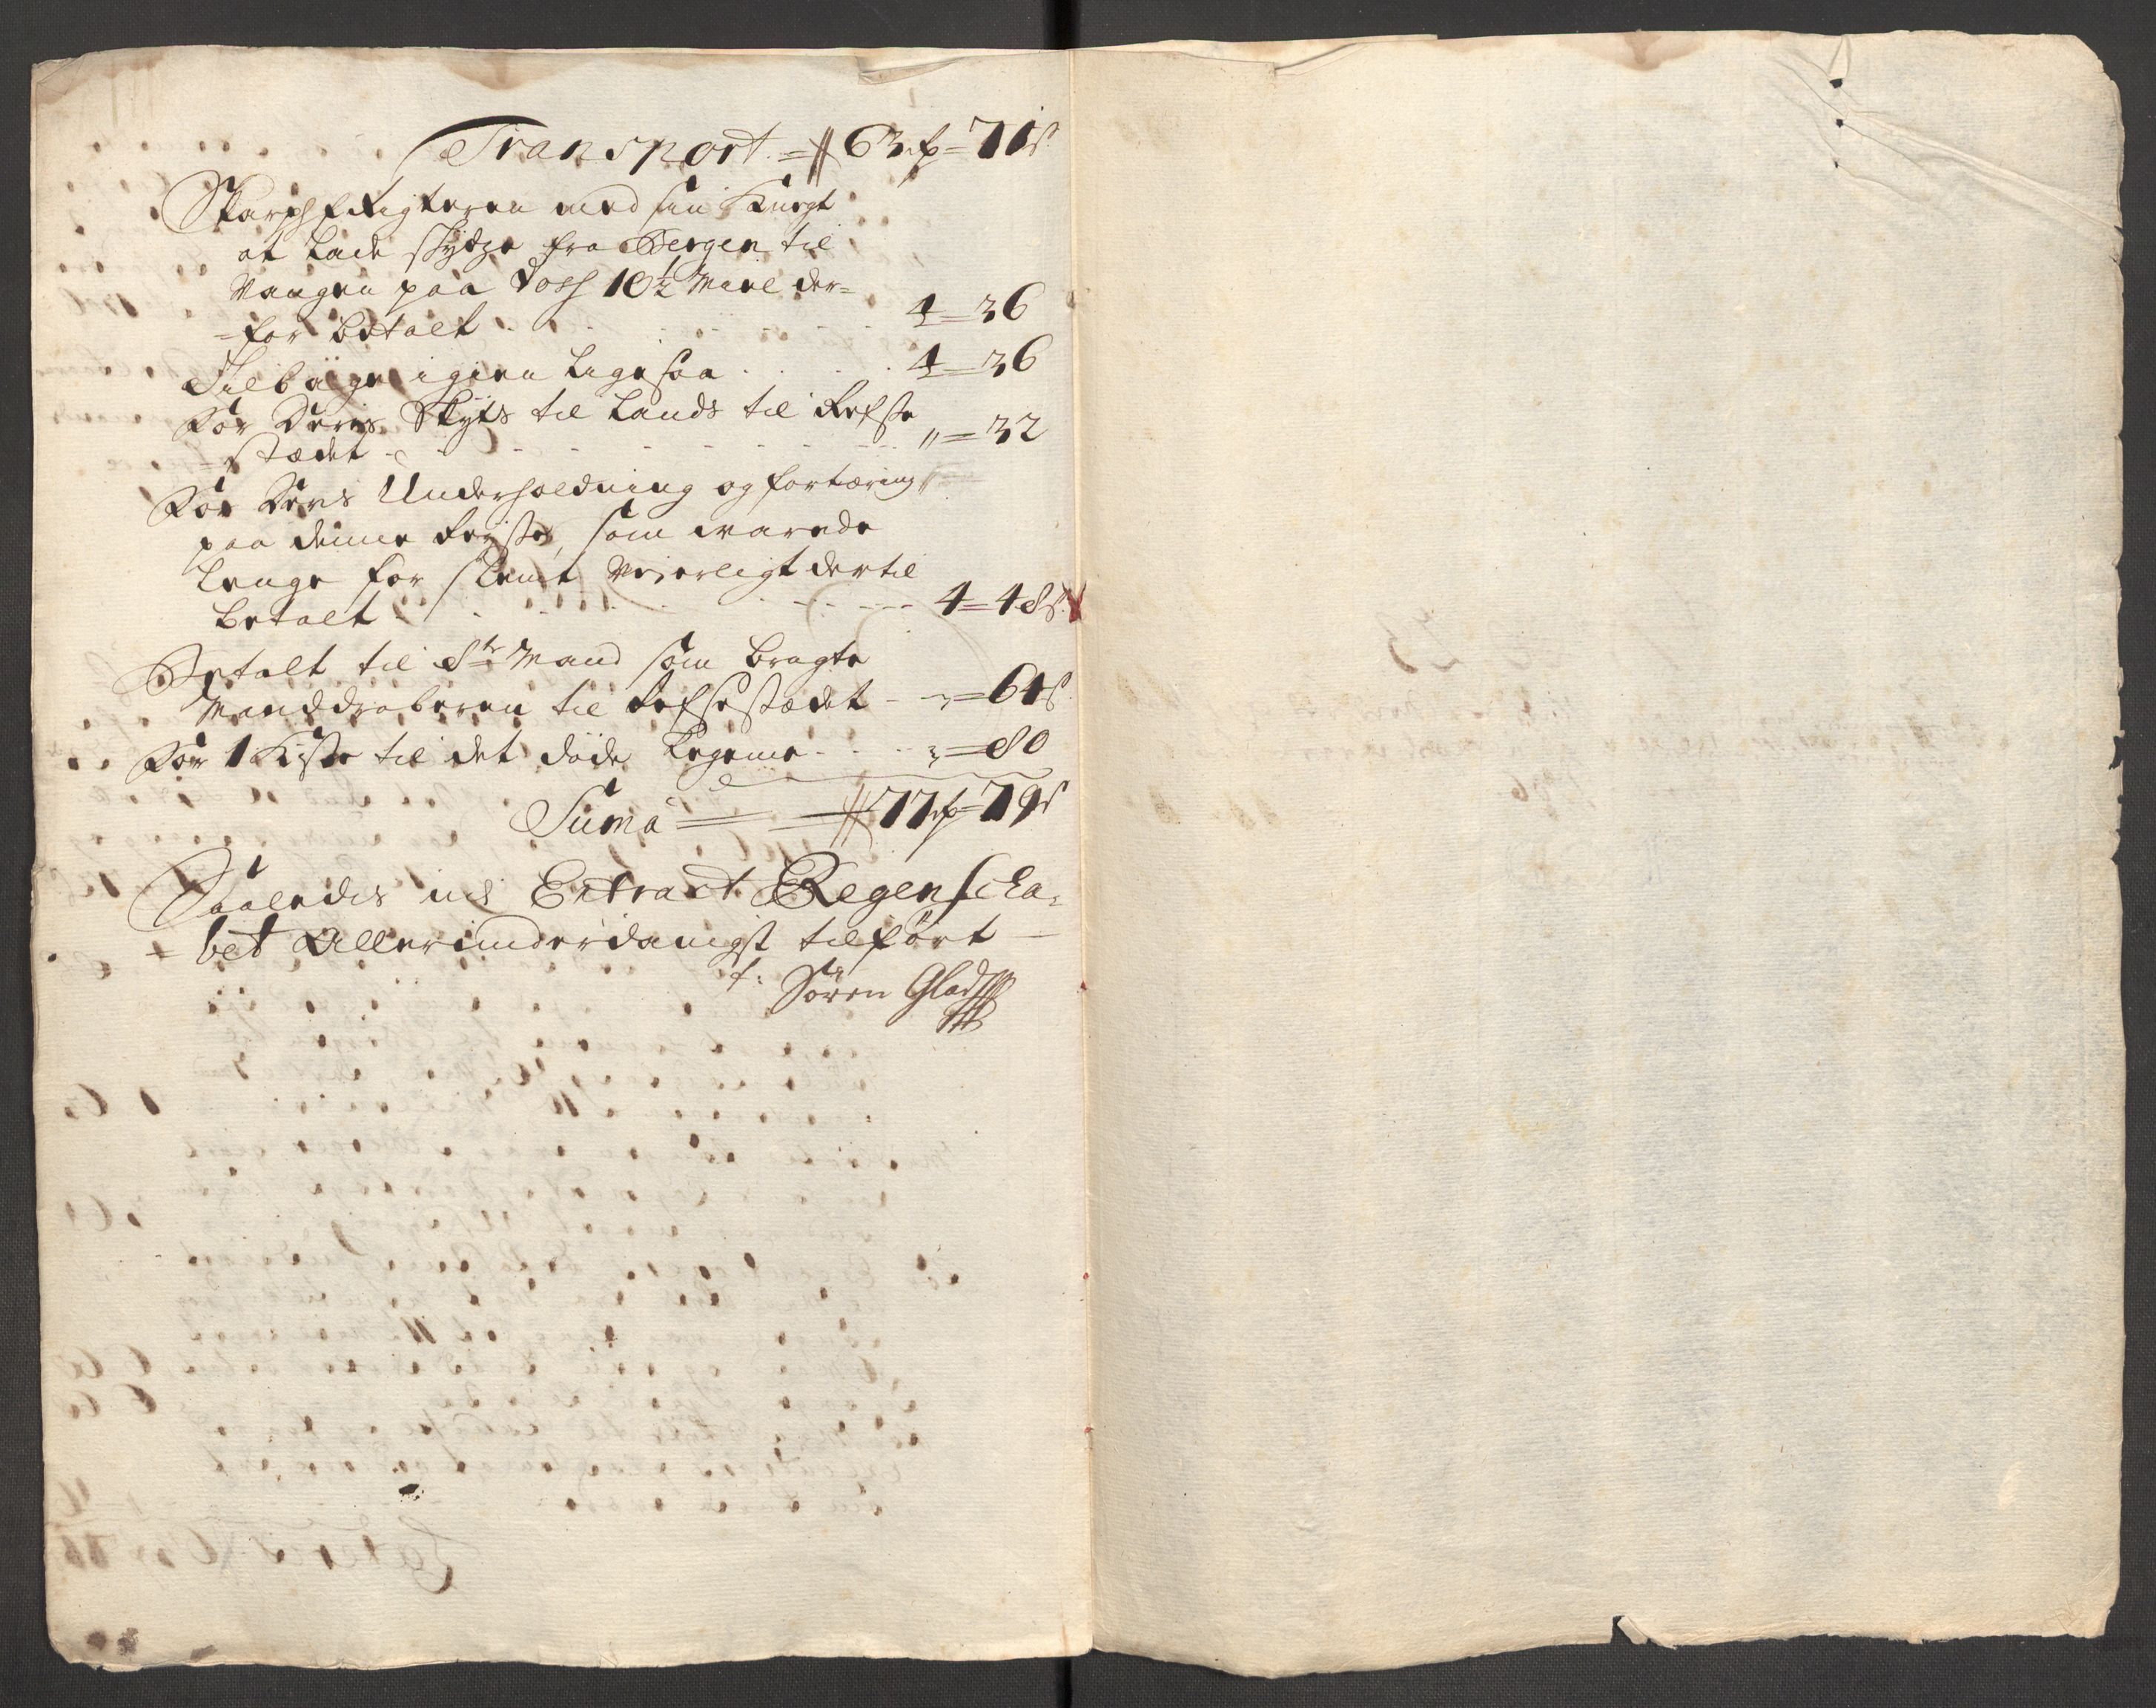 Transport = 63 rf = 71 s
Skarpfrigteren med sin Knegt
at Lade skydze fra Bergen til
Vangen paa Voss 10½ Miil der=
=for betalt . . . 4 = 36
Tilbage igien Ligesaa . . . 4 = 36
For Deris Skyts til Lands til Refse
stædet . . . " = 32
For Ders Underholdning og fortæring
paa denne Reyse, som warede
Lenge for slemt Veierligt dertil
betalt . . . 4 = 48 s
Betalt til 8te Mand som bragte
Manddraberen til Refsestædet - " = 64 s
For 1 Kiste til det døde Legeme . . . " = 80
Suma = 77 rf = 79 s
Saaledis ud Extract Regenscha=
= bet Allerunderdanigst tilført
Søren Glad